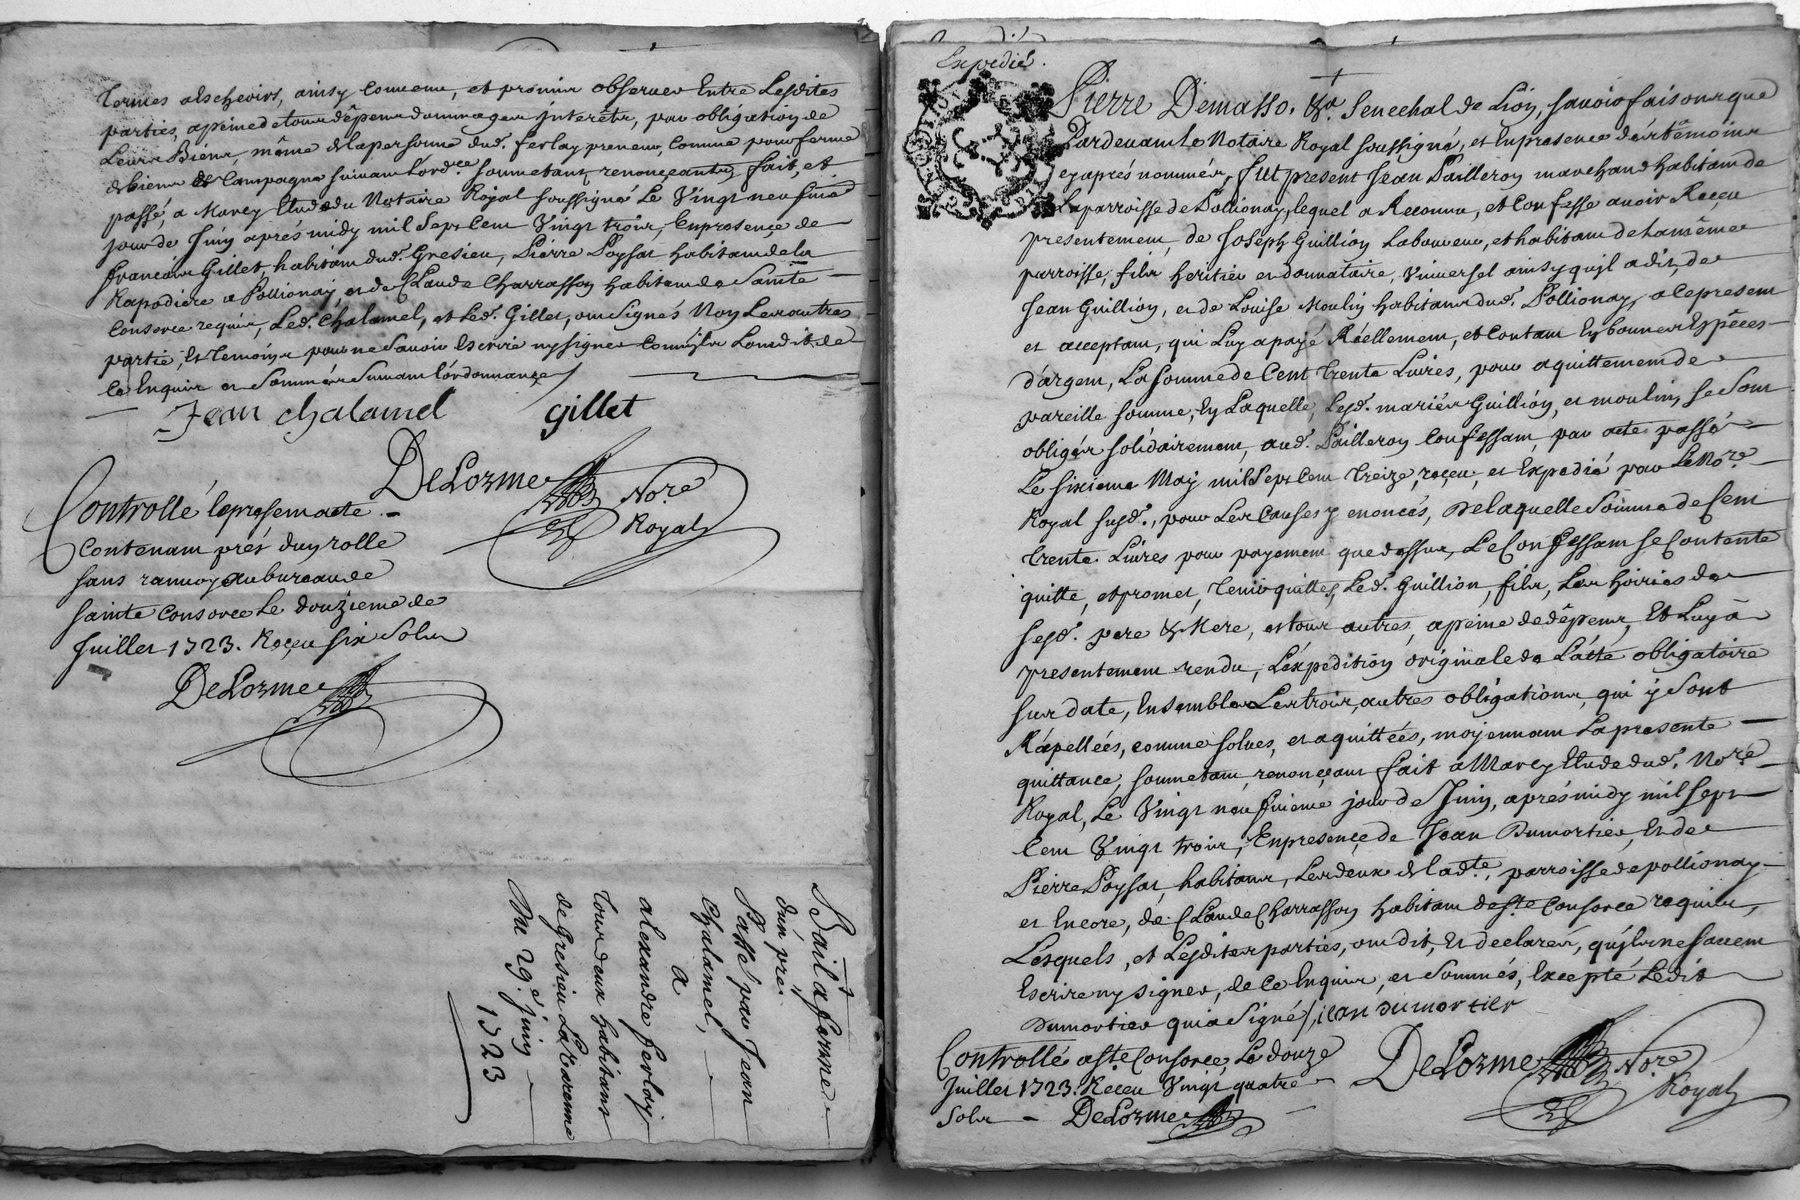 termes aescheoirs, ainsy convenu, et promis observer Entre Lesdites
parties, apeine detous dêpens dommages interêts, par obligation de
Leurs Biens, même delapersonne dud. ferlay preneur, Comme pour ferme
debiens de Campagne suivant L'ord.ce soumetant, renonçants, fait, et
passé, a Marcy Etude du Notaire Royal soussigné Le Vingt neufuieme
jour de Juin aprés midy mil Sept Cent Vingt trois, Enpresençe de
françois Gillet, habitant dud. Gresieu, Pierre Poysat habitant de la
Rapodiere a Pollionay, et de Claude Charrasson habitant de Sainte
Consorce requis, Led. Chalamel, et Led. Gillet, ont Signés Non Les autres
partie, Et temoins pour ne Savoir Escrire ny signer Comm'ils L'ont dit de
Ce Enquis et Sommés Suivant L'ordonnançe /
Jean chalamel gillet
DeLorme No.re
Royal
Controllé lepresent acte
Contenant prés d'un rolle
sans ranvoy au bureau de
Sainte Consorce Le douzieme de
Juillet 1723. Reçeu six Sols
DeLorme
Bail a ferme
d'un pré.
Passé par Jean
Chalamel,
A
alexandre ferlay
Tous deux habitans
de Gresieu La Varenne
Du 29.e Juin
1723
Expedié.
Pierre Demasso. Sr. Senechal de Lion, savoir faisons que
Pardevant Le Notaire Royal soussigné, et Enpresence des têmoins
cy aprés nommés, fUt present Jean Pailleron marchand habitant de
La parroisse de Pollionay, lequel a Reconnu, et Confesse avoir Reçeu
presentement, de Joseph Guillion Laboureur, et habitant de La même
parroisse, fils heritier et donnataire, Universel ainsy qu'jl a dit, de
Jean Guillion, et de Louise Moulin habitans dud. Pollionay, a Ce present
et acceptant, qui Luy a payé Réellement, et Contant En bonnes Espêces
d'argent, La somme de Cent trente Livres, pour aquittement de
pareille somme, En Laquelle, Lesd. mariés Guillion, et moulin, se sont
obligés solidairement, aud. Pailleron Confessant, par acte passé
Le sixieme May mil Sept Cent treize, reçeu, et Expedié par Le No.re
Royal susd., pour Les Causes y enoncés, De laquelle Somme de Cent
trente Livres pour payement que dessus, Le Confessant se Contente
quitte, et promet, tenir quittes, Led. Guillion, fils, Les hoiries de
sesd. pere & Mere, et tous autres, a peine de dêpens, Et Luy a
presentement rendu, L'expedition originale de L'acte obligatoire
sus daté, Ensembles Les trois, autres obligations, qui y sont
Rapellées, comme solues, et aquittées, moyennant La presente
quittance, soumetant, renonçant fait a Marcy Etude dud. No.re
Royal, Le Vingt neufuieme jour de Juin, aprés midy mil sept
Cent Vingt trois, Enpresençe de Jean Dumortier, Et de
Pierre Poysat, habitans, Les deux de Lad.te, parroisse de pollionay
et Encore, de Claude Charrasson habitant de S.te Consorce requis,
Lesquels, et Lesdites parties, ont dit, Et declarés, qu'jls ne savent
Escrire ny signer, de Ce Enquis, et Sommés, Excepté Ledit
Dumortier qui a Signé /. jean dumortier
DeLorme No.re
Royal
Controllé a S.te Consorce, Le douze
Juillet 1723. Receu Vingt quatre
Sols DeLorme